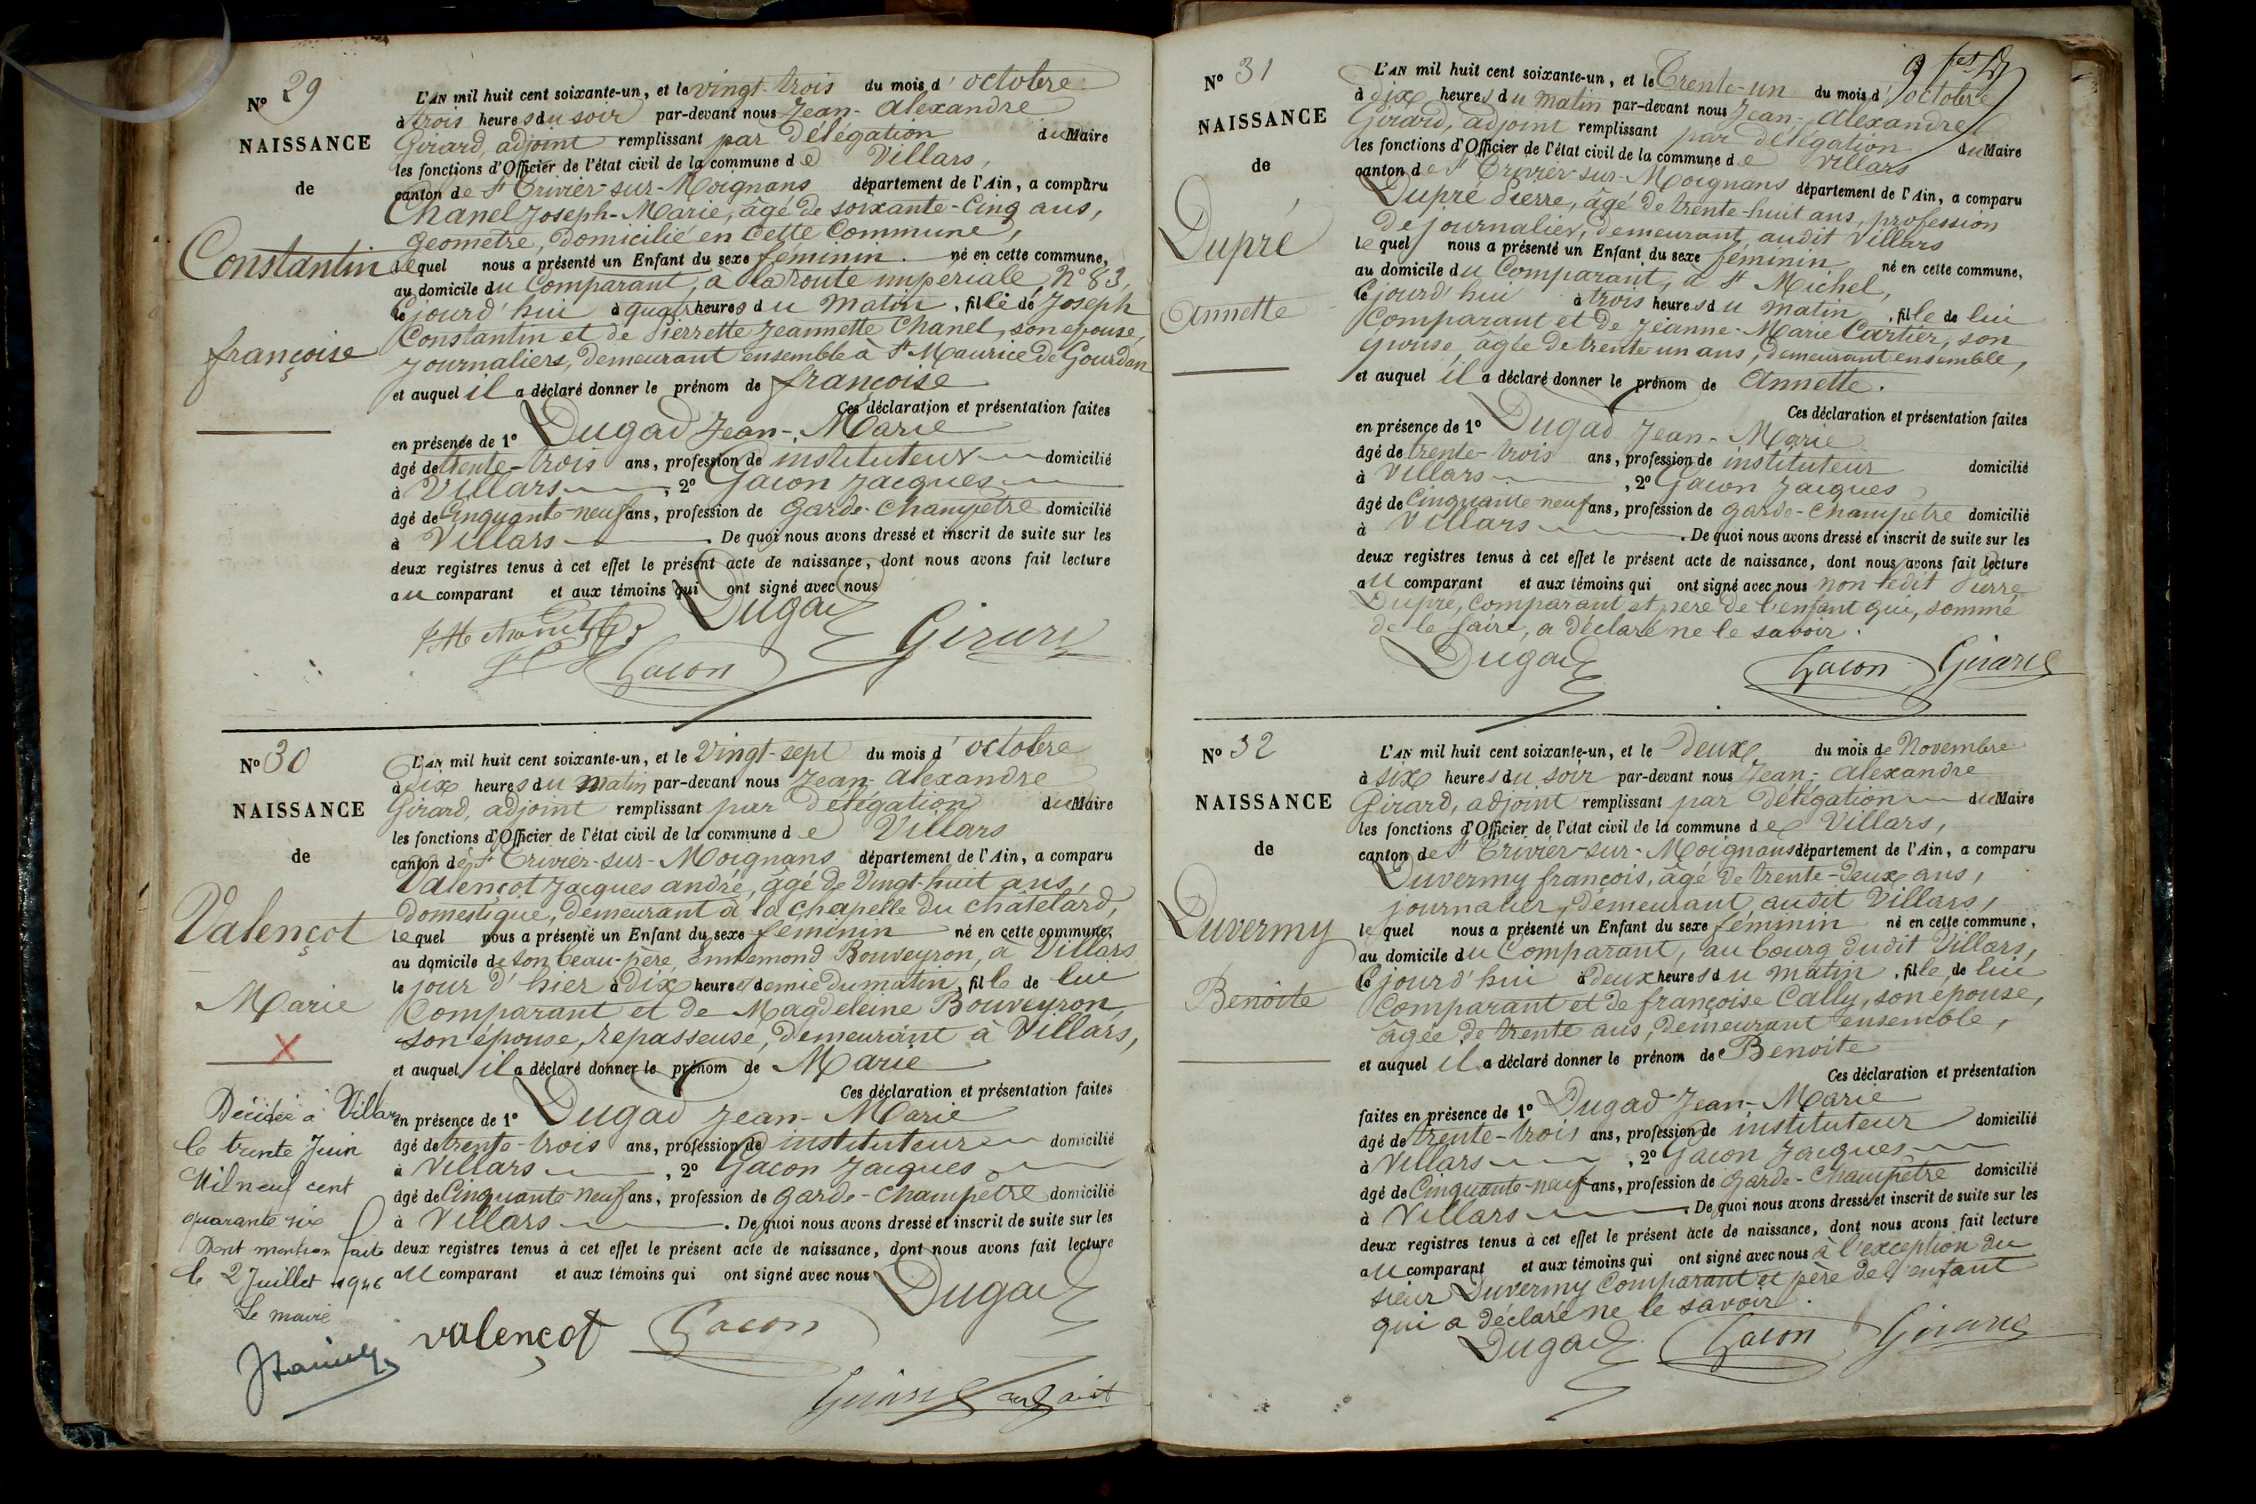 Nº 29
NAISSANCE
de
Constantin
françoise
L'AN mil huit cent soixante-un, et le vingt-trois du mois d'octobre
à trois heures du soir par-devant nous Jean-Alexandre
Girard, adjoint remplissant par délégation du Maire
les fonctions d'Officier de l'état civil de la commune de Villars,
canton de St Trivier-sur-Moignans département de l'Ain, a comparu
Chanel Joseph-Marie, âgé de soixante-cinq ans,
géomètre, domicilié en cette Commune,
lequel nous a présenté un Enfant du sexe féminin né en cette commune,
au domicile du Comparant, à la route impériale, Nº 83,
le jourd'hui à quatre heures du matin, fille de Joseph
Constantin et de Pierrette Jeannette Chanel, son épouse,
journaliers, demeurant ensemble à St Maurice de Gourdan
et auquel il a déclaré donner le prénom de françoise
Ces déclaration et présentation faites
en présence de 1º Dugad Jean-Marie
âgé de trente-trois ans, profession de instituteur domicilié
à Villars, 2º Gacon Jacques
âgé de Cinquante-neuf ans, profession de garde-champêtre domicilié
à Villars. De quoi nous avons dressé et inscrit de suite sur les
deux registres tenus à cet effet le présent acte de naissance, dont nous avons fait lecture
au comparant et aux témoins qui ont signé avec nous
Dugad
Girard
Gacon
Nº 30
NAISSANCE
de
Valençot
Marie
X
Décédée à Villars
le trente Juin
Mil neuf cent
quarante six
Dont mention faite
le 2 Juillet 1946
Le maire
L'AN mil huit cent soixante-un, et le Vingt-sept du mois d'octobre
à dix heures du matin par-devant nous Jean-Alexandre
Girard, adjoint remplissant par délégation du Maire
les fonctions d'Officier de l'état civil de la commune de Villars
canton de St Trivier-sur-Moignans département de l'Ain, a comparu
Valençot Jacques andré, âgé de Vingt-huit ans,
domestique, demeurant à la chapelle du chatelard,
lequel nous a présenté un Enfant du sexe féminin né en cette commune,
au domicile de son beau-père Ennemond Bouveyron, à Villars
le jour d'hier à dix heures et demie du matin, fille de lui
Comparant et de Magdeleine Bouveyron,
son épouse, repasseuse, demeurant à Villars,
et auquel il a déclaré donner le prénom de Marie
Ces déclaration et présentation faites
en présence de 1º Dugad Jean-Marie
âgé de trente-trois ans, profession de instituteur domicilié
à Villars, 2º Gacon Jacques
âgé de Cinquante-neuf ans, profession de garde-champêtre domicilié
à Villars. De quoi nous avons dressé et inscrit de suite sur les
deux registres tenus à cet effet le présent acte de naissance, dont nous avons fait lecture
au comparant et aux témoins qui ont signé avec nous
Dugad
valençot
Gacon
Girard
Nº 31
NAISSANCE
de
Dupré
Annette
L'AN mil huit cent soixante-un, et le Trente-un du mois d'octobre
à dix heures du matin par-devant nous Jean-Alexandre
Girard, adjoint remplissant par délégation du Maire
les fonctions d'Officier de l'état civil de la commune de Villars
canton de St Trivier-sur-Moignans département de l'Ain, a comparu
Dupré Pierre, âgé de trente-huit ans, profession
de journalier, demeurant audit Villars
lequel nous a présenté un Enfant du sexe féminin né en cette commune,
au domicile du Comparant, à St Michel,
le jourd'hui à trois heures du matin, fille de lui
Comparant et de Jeanne-Marie Cartier, son
épouse, âgée de trente un ans, demeurant ensemble,
et auquel il a déclaré donner le prénom de Annette.
Ces déclaration et présentation faites
en présence de 1º Dugad Jean-Marie
âgé de trente-trois ans, profession de instituteur domicilié
à Villars, 2º Gacon Jacques
âgé de Cinquante-neuf ans, profession de garde-champêtre domicilié
à Villars. De quoi nous avons dressé et inscrit de suite sur les
deux registres tenus à cet effet le présent acte de naissance, dont nous avons fait lecture
au comparant et aux témoins qui ont signé avec nous non ledit Pierre
Dupré, comparant et père de l'enfant qui, sommé
de le faire, a déclaré ne le savoir.
Dugad
Gacon
Girard
Nº 32
NAISSANCE
de
Duvermy
Benoîte
L'AN mil huit cent soixante-un, et le deux du mois de Novembre
à six heures du soir par-devant nous Jean-Alexandre
Girard, adjoint remplissant par délégation du Maire
les fonctions d'Officier de l'état civil de la commune de Villars,
canton de St Trivier-sur-Moignans département de l'Ain, a comparu
Duvermy françois, âgé de trente-deux ans,
journalier, demeurant audit Villars,
lequel nous a présenté un Enfant du sexe féminin né en cette commune,
au domicile du Comparant, au bourg dudit Villars,
le jourd'hui à deux heures du matin, fille de lui
Comparant et de françoise Cally, son épouse,
âgée de trente ans, demeurant ensemble,
et auquel il a déclaré donner le prénom de Benoîte
Ces déclaration et présentation
faites en présence de 1º Dugad Jean-Marie
âgé de trente-trois ans, profession de instituteur domicilié
à Villars, 2º Gacon Jacques
âgé de Cinquante-neuf ans, profession de garde-champêtre domicilié
à Villars. De quoi nous avons dressé et inscrit de suite sur les
deux registres tenus à cet effet le présent acte de naissance, dont nous avons fait lecture
au comparant et aux témoins qui ont signé avec nous à l'exception du
sieur Duvermy Comparant et père de l'enfant
qui a déclaré ne le savoir.
Dugad
Gacon
Girard